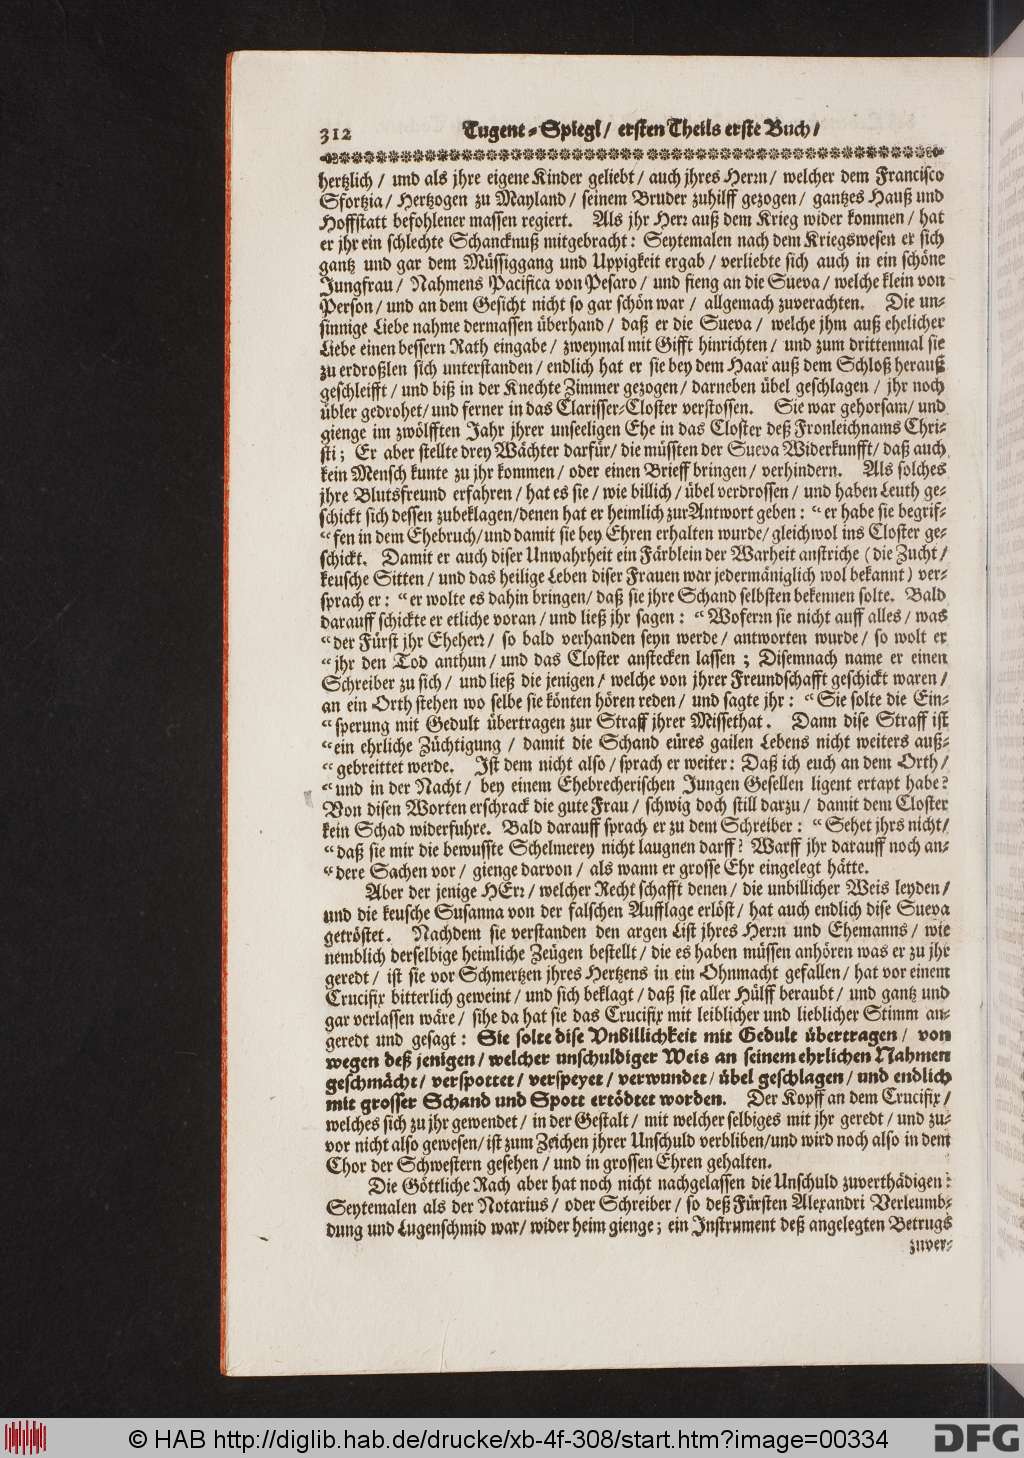 312 Tugent-Spiegl/ ersten Theils erste Buch/
hertzlich/ und als jhre eigene Kinder geliebt/ auch jhres Herrn/ welcher dem Francisco
Sfortzia/ Hertzogen zu Mayland/ seinem Bruder zuhilff gezogen/ gantzes Hauß und
Hoffstatt befohlener massen regiert. Als jhr Herr auß dem Krieg wider kommen/ hat
er jhr ein schlechte Schancknuß mitgebracht: Seytemalen nach dem Kriegswesen er sich
gantz und gar dem Müssiggang und Uppigkeit ergab/ verliebte sich auch in ein schöne
Jungfrau/ Nahmens Pacifica von Pesaro/ und fieng an die Sueva/ welche klein von
Person/ und an dem Gesicht nicht so gar schön war/ allgemach zuverachten. Die un-
sinnige Liebe nahme dermassen überhand/ daß er die Sueva/ welche jhm auß ehelicher
Liebe einen bessern Rath eingabe/ zweymal mit Gifft hinrichten/ und zum drittenmal sie
zu erdroßlen sich unterstanden/ endlich hat er sie bey dem Haar auß dem Schloß herauß
geschleifft/ und biß in der Knechte Zimmer gezogen/ darneben übel geschlagen/ jhr noch
übler gedrohet/ und ferner in das Clarisser-Closter verstossen. Sie war gehorsam/ und
gienge im zwölfften Jahr jhrer unseeligen Ehe in das Closter deß Fronleichnams Chri-
sti; Er aber stellte drey Wächter darfür/ die müssten der Sueva Widerkunfft/ daß auch
kein Mensch kunte zu jhr kommen/ oder einen Brieff bringen/ verhindern. Als solches
jhre Blutsfreund erfahren/ hat es sie/ wie billich/ übel verdrossen/ und haben Leuth ge-
schickt sich dessen zubeklagen/ denen hat er heimlich zur Antwort geben: “er habe sie begrif-
“fen in dem Ehebruch/ und damit sie bey Ehren erhalten wurde/ gleichwol ins Closter ge-
schickt. Damit er auch diser Unwahrheit ein Färblein der Warheit anstriche (die Zucht/
keusche Sitten/ und das heilige Leben diser Frauen war jedermäniglich wol bekannt) ver-
sprach er: “er wolte es dahin bringen/ daß sie jhre Schand selbsten bekennen solte. Bald
darauff schickte er etliche voran/ und ließ jhr sagen: “Wofern sie nicht auff alles/ was
“der Fürst jhr Eheherr/ so bald verhanden seyn werde/ antworten wurde/ so wolt er
“jhr den Tod anthun/ und das Closter anstecken lassen; Disemnach name er einen
Schreiber zu sich/ und ließ die jenigen/ welche von jhrer Freundschafft geschickt waren/
an ein Orth stehen wo selbe sie könten hören reden/ und sagte jhr: “Sie solte die Ein-
“sperung mit Gedult übertragen zur Straff jhrer Missethat. Dann dise Straff ist
“ein ehrliche Züchtigung/ damit die Schand eüres gailen Lebens nicht weiters auß-
“gebreittet werde. Ist dem nicht also/ sprach er weiter: Daß ich euch an dem Orth/
“und in der Nacht/ bey einem Ehebrecherischen Jungen Gesellen ligent ertapt habe?
Von disen Worten erschrack die gute Frau/ schwig doch still darzu/ damit dem Closter
kein Schad widerfuhre. Bald darauff sprach er zu dem Schreiber: “Sehet jhrs nicht/
“daß sie mir die bewusste Schelmerey nicht laugnen darff? Warff jhr darauff noch an-
“dere Sachen vor/ gienge darvon/ als wann er grosse Ehr eingelegt hätte.
Aber der jenige HErr/ welcher Recht schafft denen/ die unbillicher Weis leyden/
und die keusche Susanna von der falschen Aufflage erlöst/ hat auch endlich dise Sueva
getröstet. Nachdem sie verstanden den argen List jhres Herrn und Ehemanns/ wie
nemblich derselbige heimliche Zeügen bestellt/ die es haben müssen anhören was er zu jhr
geredt/ ist sie vor Schmertzen jhres Hertzens in ein Ohnmacht gefallen/ hat vor einem
Crucifix bitterlich geweint/ und sich beklagt/ daß sie aller Hülff beraubt/ und gantz und
gar verlassen wäre/ sihe da hat sie das Crucifix mit leiblicher und lieblicher Stimm an-
geredt und gesagt: Sie solte dise Vnbillichkeit mit Gedult übertragen/ von
wegen deß jenigen/ welcher unschuldiger Weis an seinem ehrlichen Nahmen
geschmächt/ verspottet/ verspeyet/ verwundet/ übel geschlagen/ und endlich
mit grosser Schand und Spott ertödtet worden. Der Kopff an dem Crucifix/
welches sich zu jhr gewendet/ in der Gestalt/ mit welcher selbiges mit jhr geredt/ und zu-
vor nicht also gewesen/ ist zum Zeichen jhrer Unschuld verbliben/ und wird noch also in dem
Chor der Schwestern gesehen/ und in grossen Ehren gehalten.
Die Göttliche Rach aber hat noch nicht nachgelassen die Unschuld zuverthädigen:
Seytemalen als der Notarius/ oder Schreiber/ so deß Fürsten Alexandri Verleumb-
dung und Lugenschmid war/ wider heim gienge; ein Instrument deß angelegten Betrugs
zuver-
© HAB http://diglib.hab.de/drucke/xb-4f-308/start.htm?image=00334
DFG